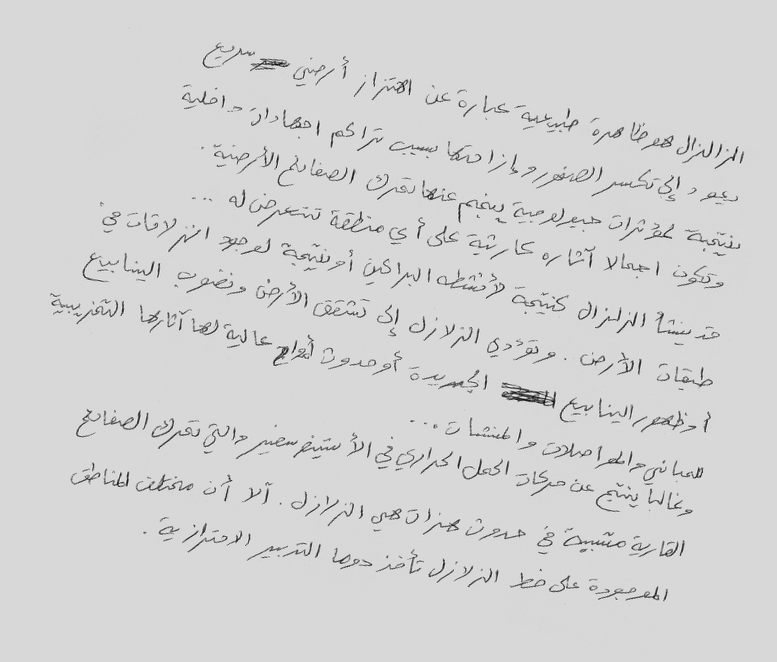 الزالزال هو ظاهرة طبيعية عبارة عن اهتزاز أرضي سريع
يعود إلى تكسر الصخور وإزاحتها بسبب تراكم اجهادات داخلية
نتيجة لمؤثرات جيولوجية ينجم عنها تحرك الصفائح الأرضية.
وتكون اجمالا آثاره كارثية على أي منطقة تتعرض له ...
قد ينشأ الزلزال كنتيجة لأنشطه البراكين أو نتيجة لوجود انزلاقات في
طبقات الأرض. وتؤدي الزلازل إلى تشقق الأرض ونضوب الينابيع
أو ظهور الينابيع الجديدة أو حدوث أمواج عالية لها آثارها التخريبية
للمباني والمواصلات والمنشات ...
وغالبا ينتج عن حركات الحمل الحراري في الأستينوسفير والتي تحرك الصفائح
القارية متسببة في حدوث هزات هي الزلازل. ألا أن مختلف المناطق
الموجودة على خط الزلازل تأخذ دوما التدبير الاحترازية.